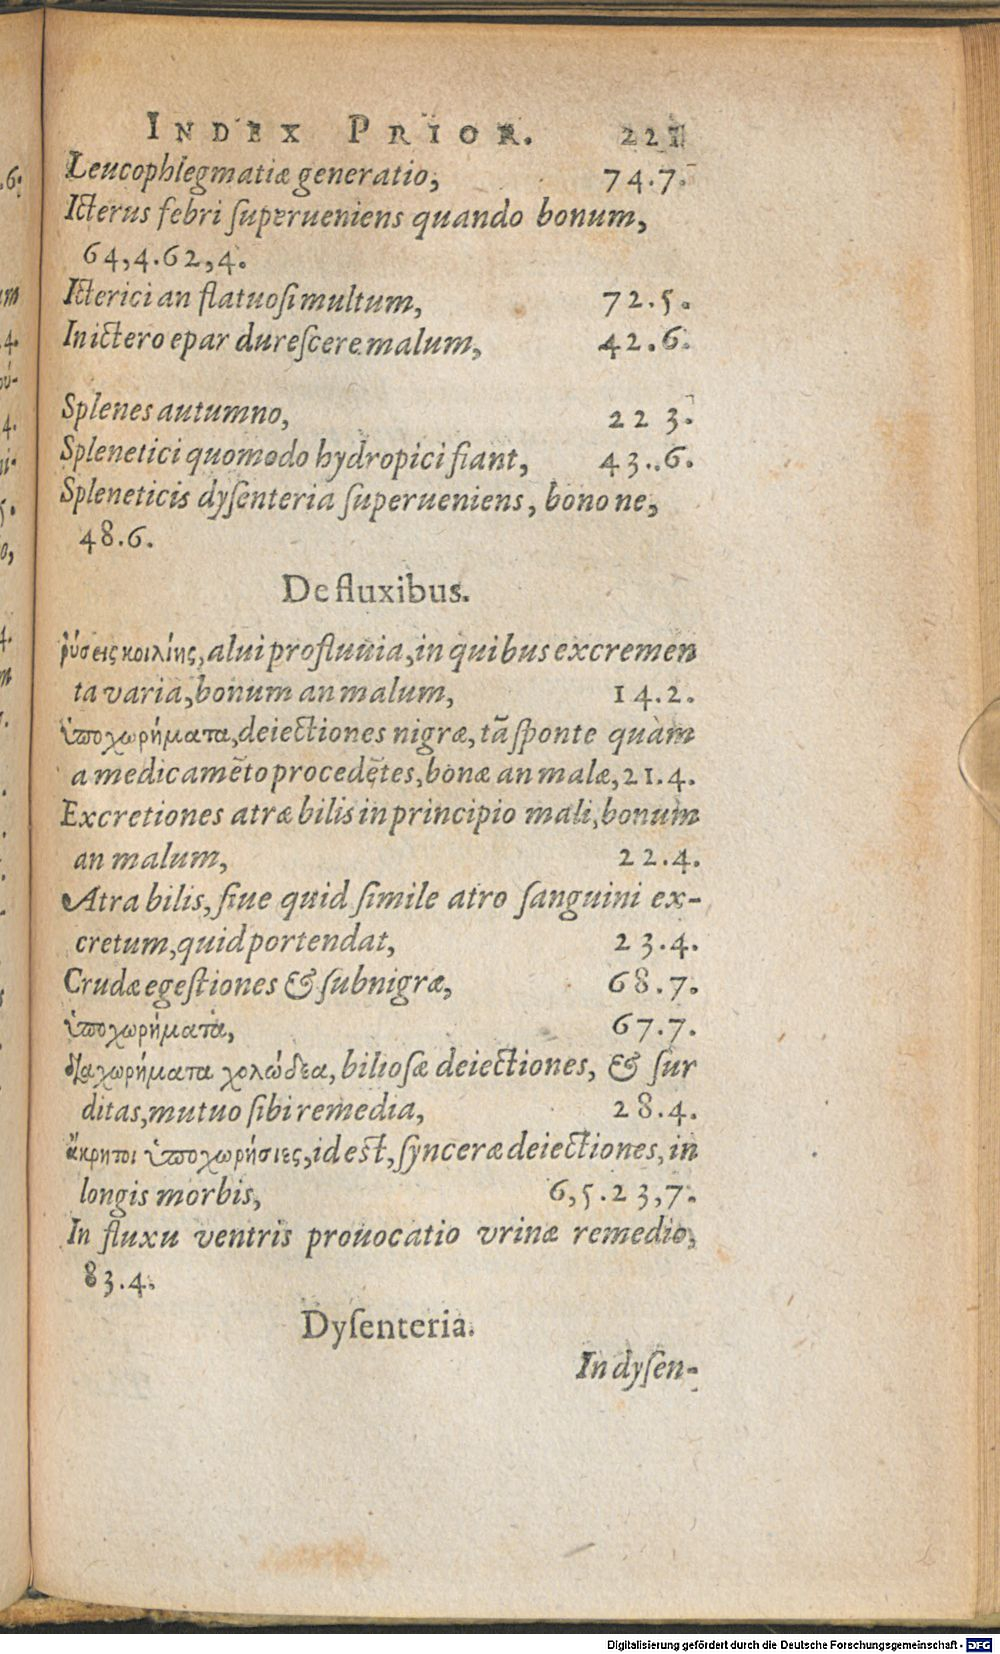 INDEX PRIOR. 221
Leucophlegmatiæ generatio, 74.7.
Icterus febri ſuperueniens quando bonum,
64,4.62,4.
Icterici an flatuoſi multum, 72.5.
In ictero epar dureſcere malum, 42.6.
Splenes autumno, 22 3.
Splenetici quomodo hydropici fiant, 43.6.
Spleneticis dyſenteria ſuperueniens, bono ne,
48.6.
De fluxibus.
ῥύσεις κοιλίης, alui profluuia, in quibus excremen
ta varia, bonum an malum, 14.2.
ὑποχωρήματα, deiectiones nigræ, tã ſponte quàm
a medicamẽto procedẽtes, bonæ an malæ, 21.4.
Excretiones atræ bilis in principio mali, bonum
an malum, 22.4.
Atra bilis, ſiue quid ſimile atro ſanguini ex-
cretum, quid portendat, 23.4.
Crudæ egeſtiones & ſubnigræ, 68.7.
ὑποχωρήματα, 67.7.
διαχωρήματα χολώδεα, bilioſæ deiectiones, & ſur
ditas, mutuo ſibi remedia, 28.4.
ἄκρητοι ὑποχωρήσιες, id eſt, ſynceræ deiectiones, in
longis morbis, 6,5.23,7.
In fluxu ventris prouocatio vrinæ remedio,
83.4.
Dyſenteria.
In dyſen-
.6.
um
4.
4.
5.
o,
4.
m
Digitalisierung gefördert durch die Deutsche Forschungsgemeinschaft - DFG